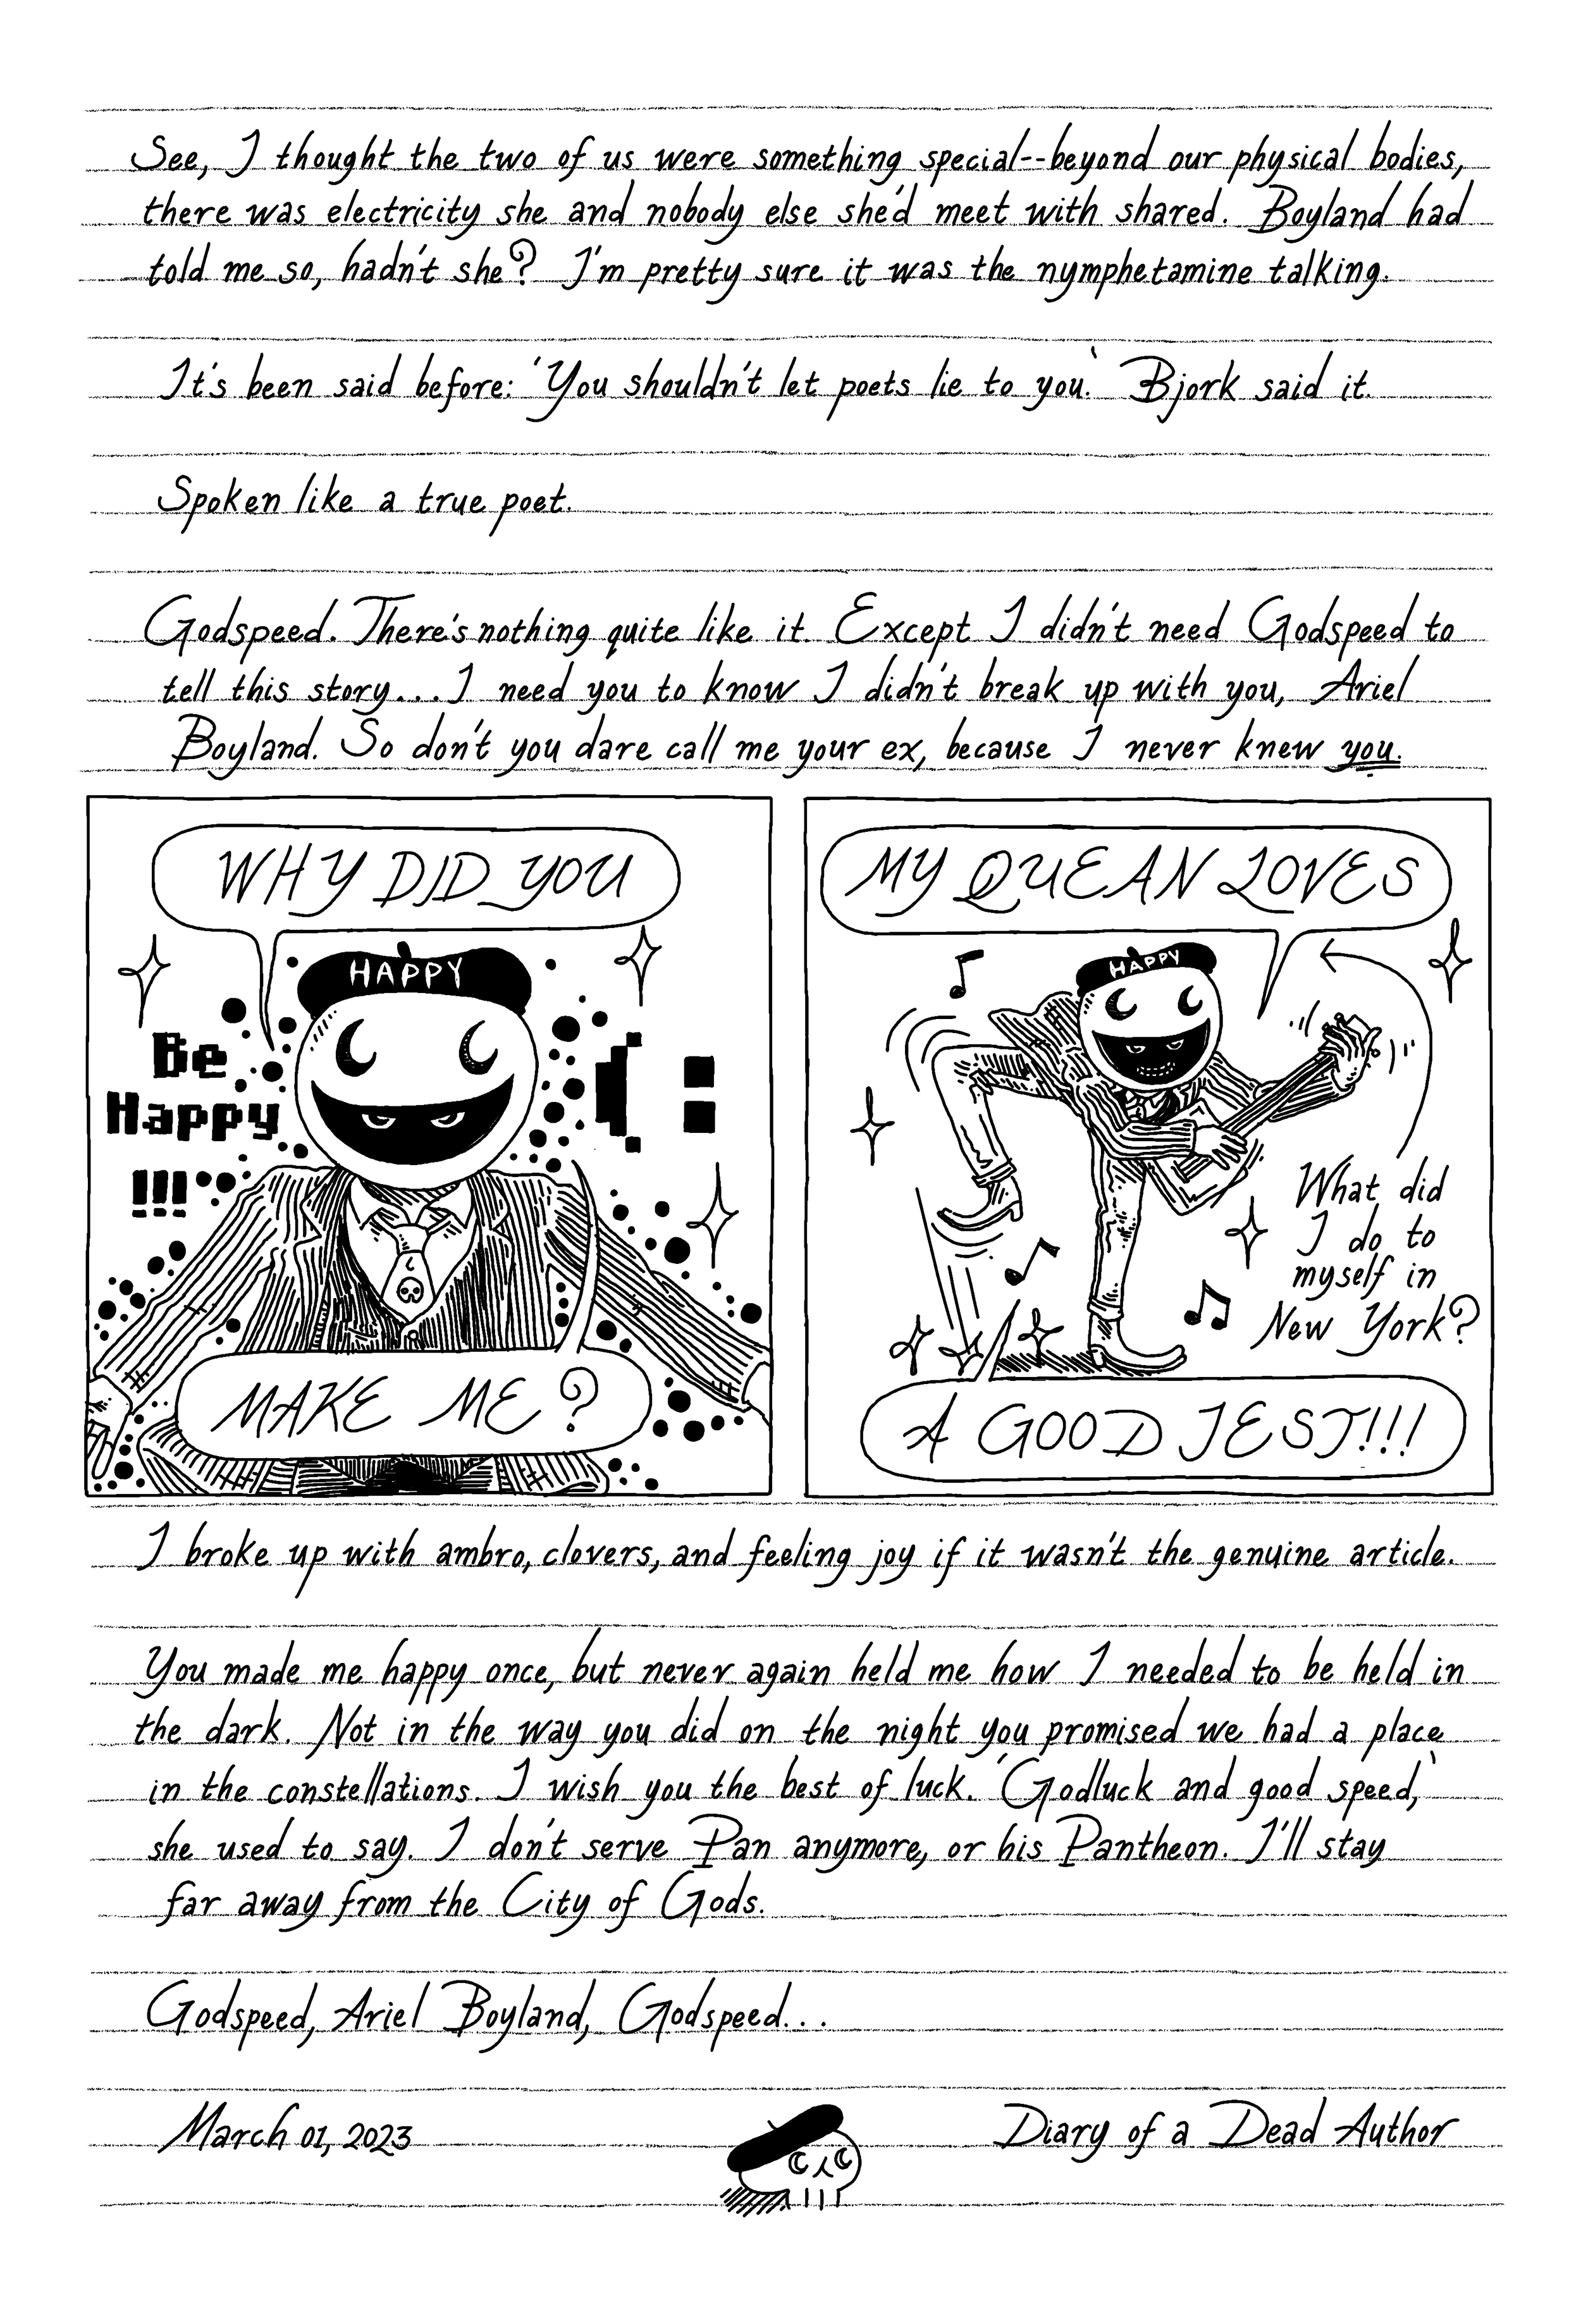 See, I thought the two of us were something special--beyond our physical bodies,
there was electricity she and nobody else she'd meet with shared. Boyland had
told me so, hadn't she? I'm pretty sure it was the nymphetamine talking.
It's been said before: 'You shouldn't let poets lie to you.' Bjork said it.
Spoken like a true poet.
Godspeed. There's nothing quite like it. Except I didn't need Godspeed to
tell this story...I need you to know I didn't break up with you, Ariel
Boyland. So don't you dare call me your ex, because I never knew you.
WHY DID YOU
HAPPY
Be
Happy
!!!
(:
MAKE ME?
MY QUEAN LOVES
HAPPY
What did
I do to
myself in
New York?
A GOOD JEST!!!
I broke up with ambro, clovers, and feeling joy if it wasn't the genuine article.
You made me happy once, but never again held me how I needed to be held in
the dark. Not in the way you did on the night you promised we had a place
in the constellations. I wish you the best of luck. 'Godluck and good speed,'
she used to say. I don't serve Pan anymore, or his Pantheon. I'll stay
far away from the City of Gods.
Godspeed, Ariel Boyland, Godspeed...
March 01, 2023
Diary of a Dead Author